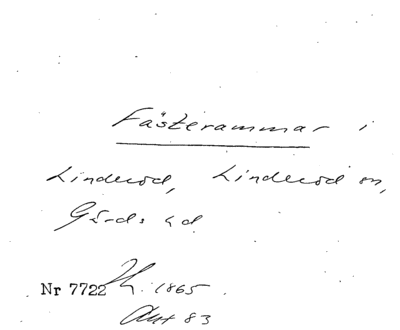 Fästerammar i
Linderöd, Linderöd sn,
Gärds hd.
Nr 7722 1865.
83